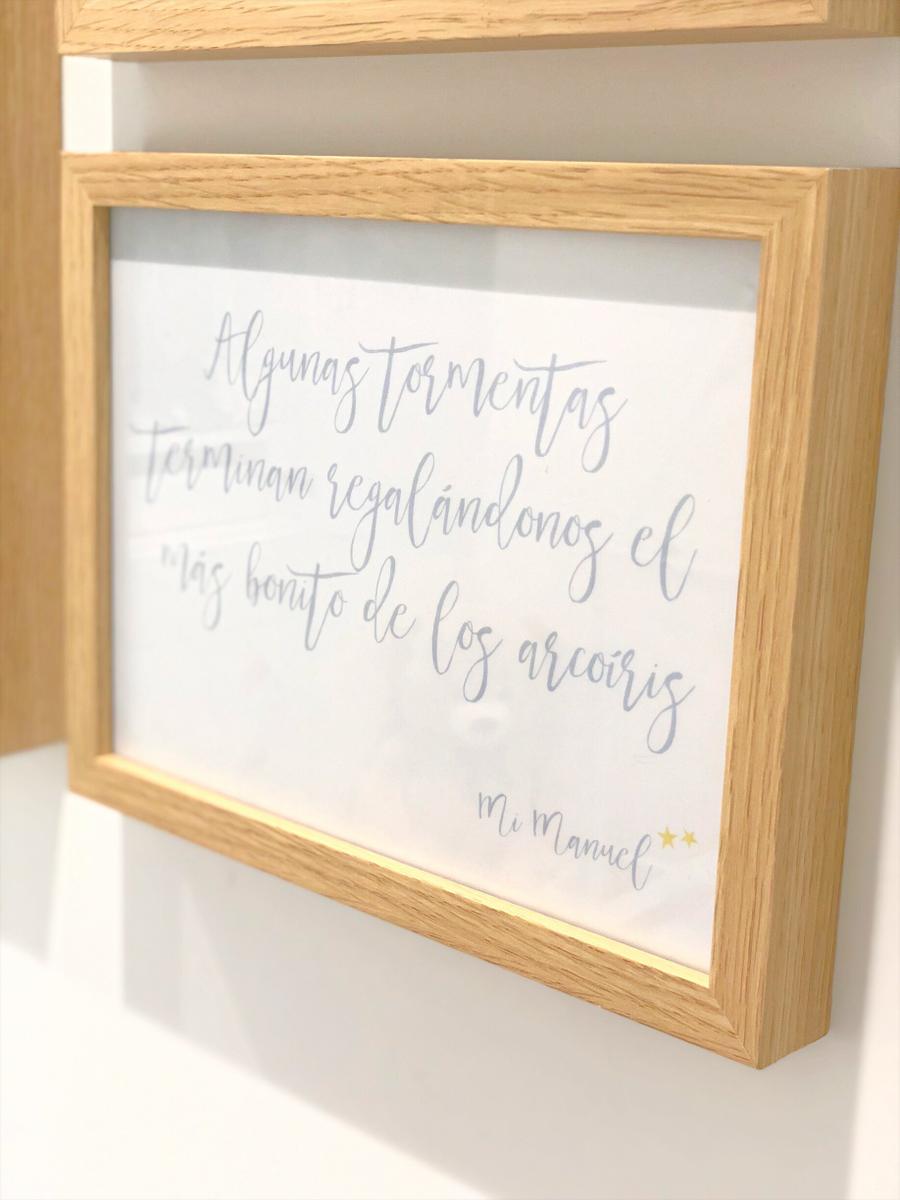 Algunas tormentas
terminan regalándonos el
más bonito de los arcoíris
Mi Manuel